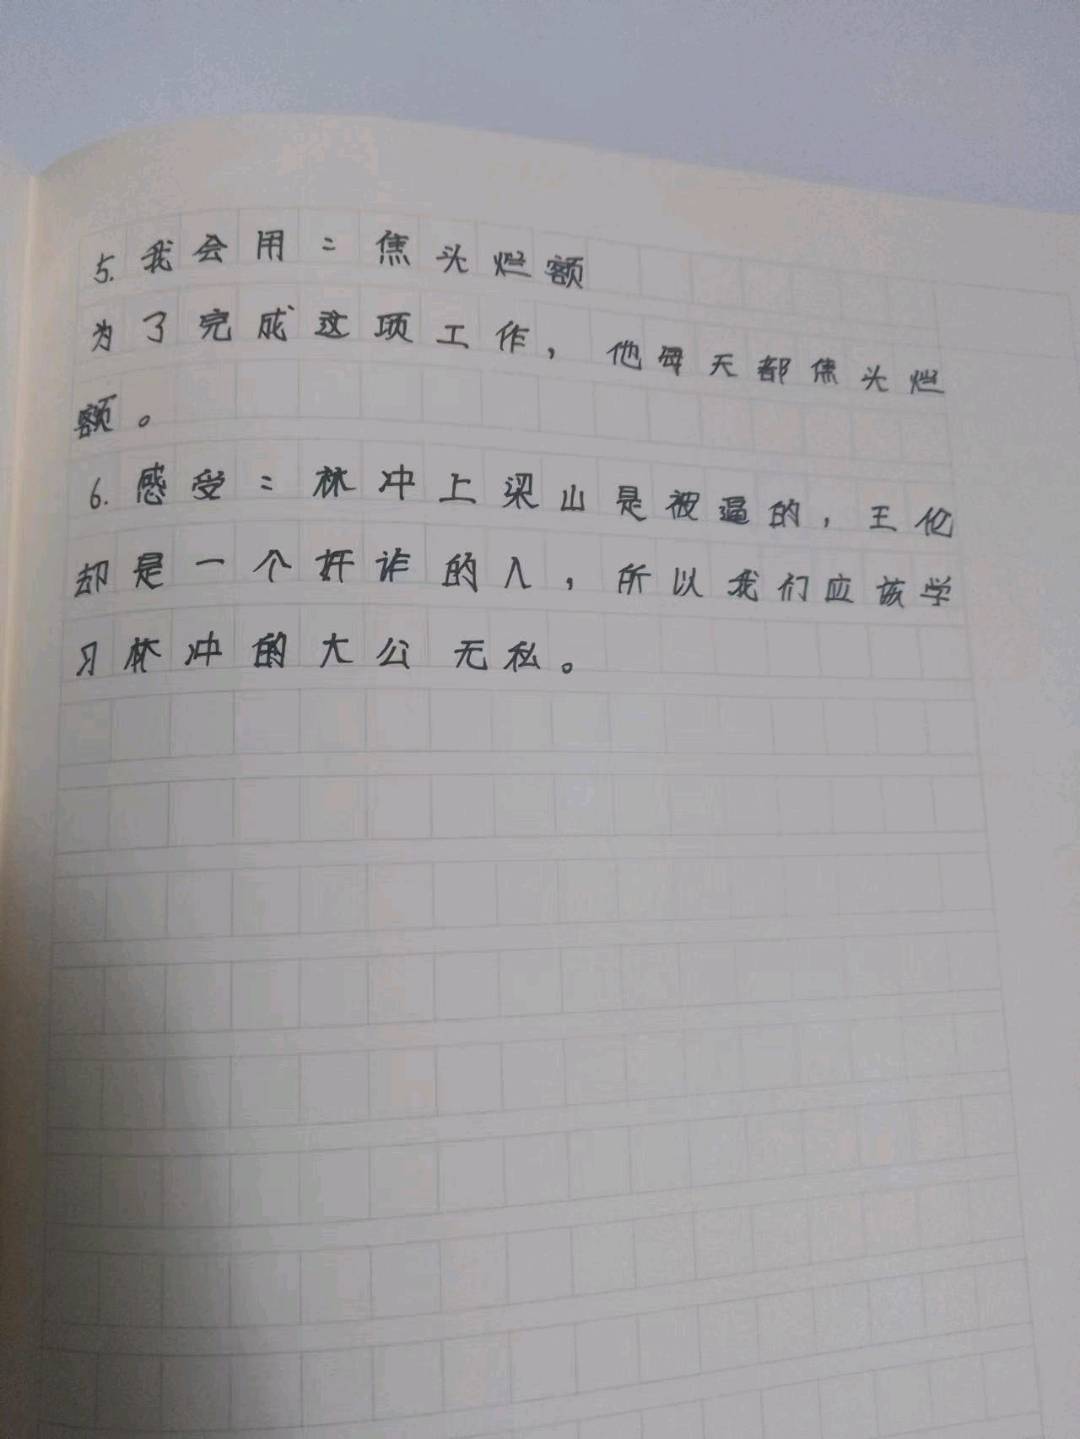 5.我会用：焦头烂额
为了完成这项工作，他每天都焦头烂
额。
6.感受：林冲上梁山是被逼的，王伦
却是一个奸诈的人，所以我们应该学
习林冲的大公无私。